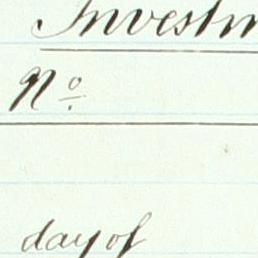 Investm
No
day of